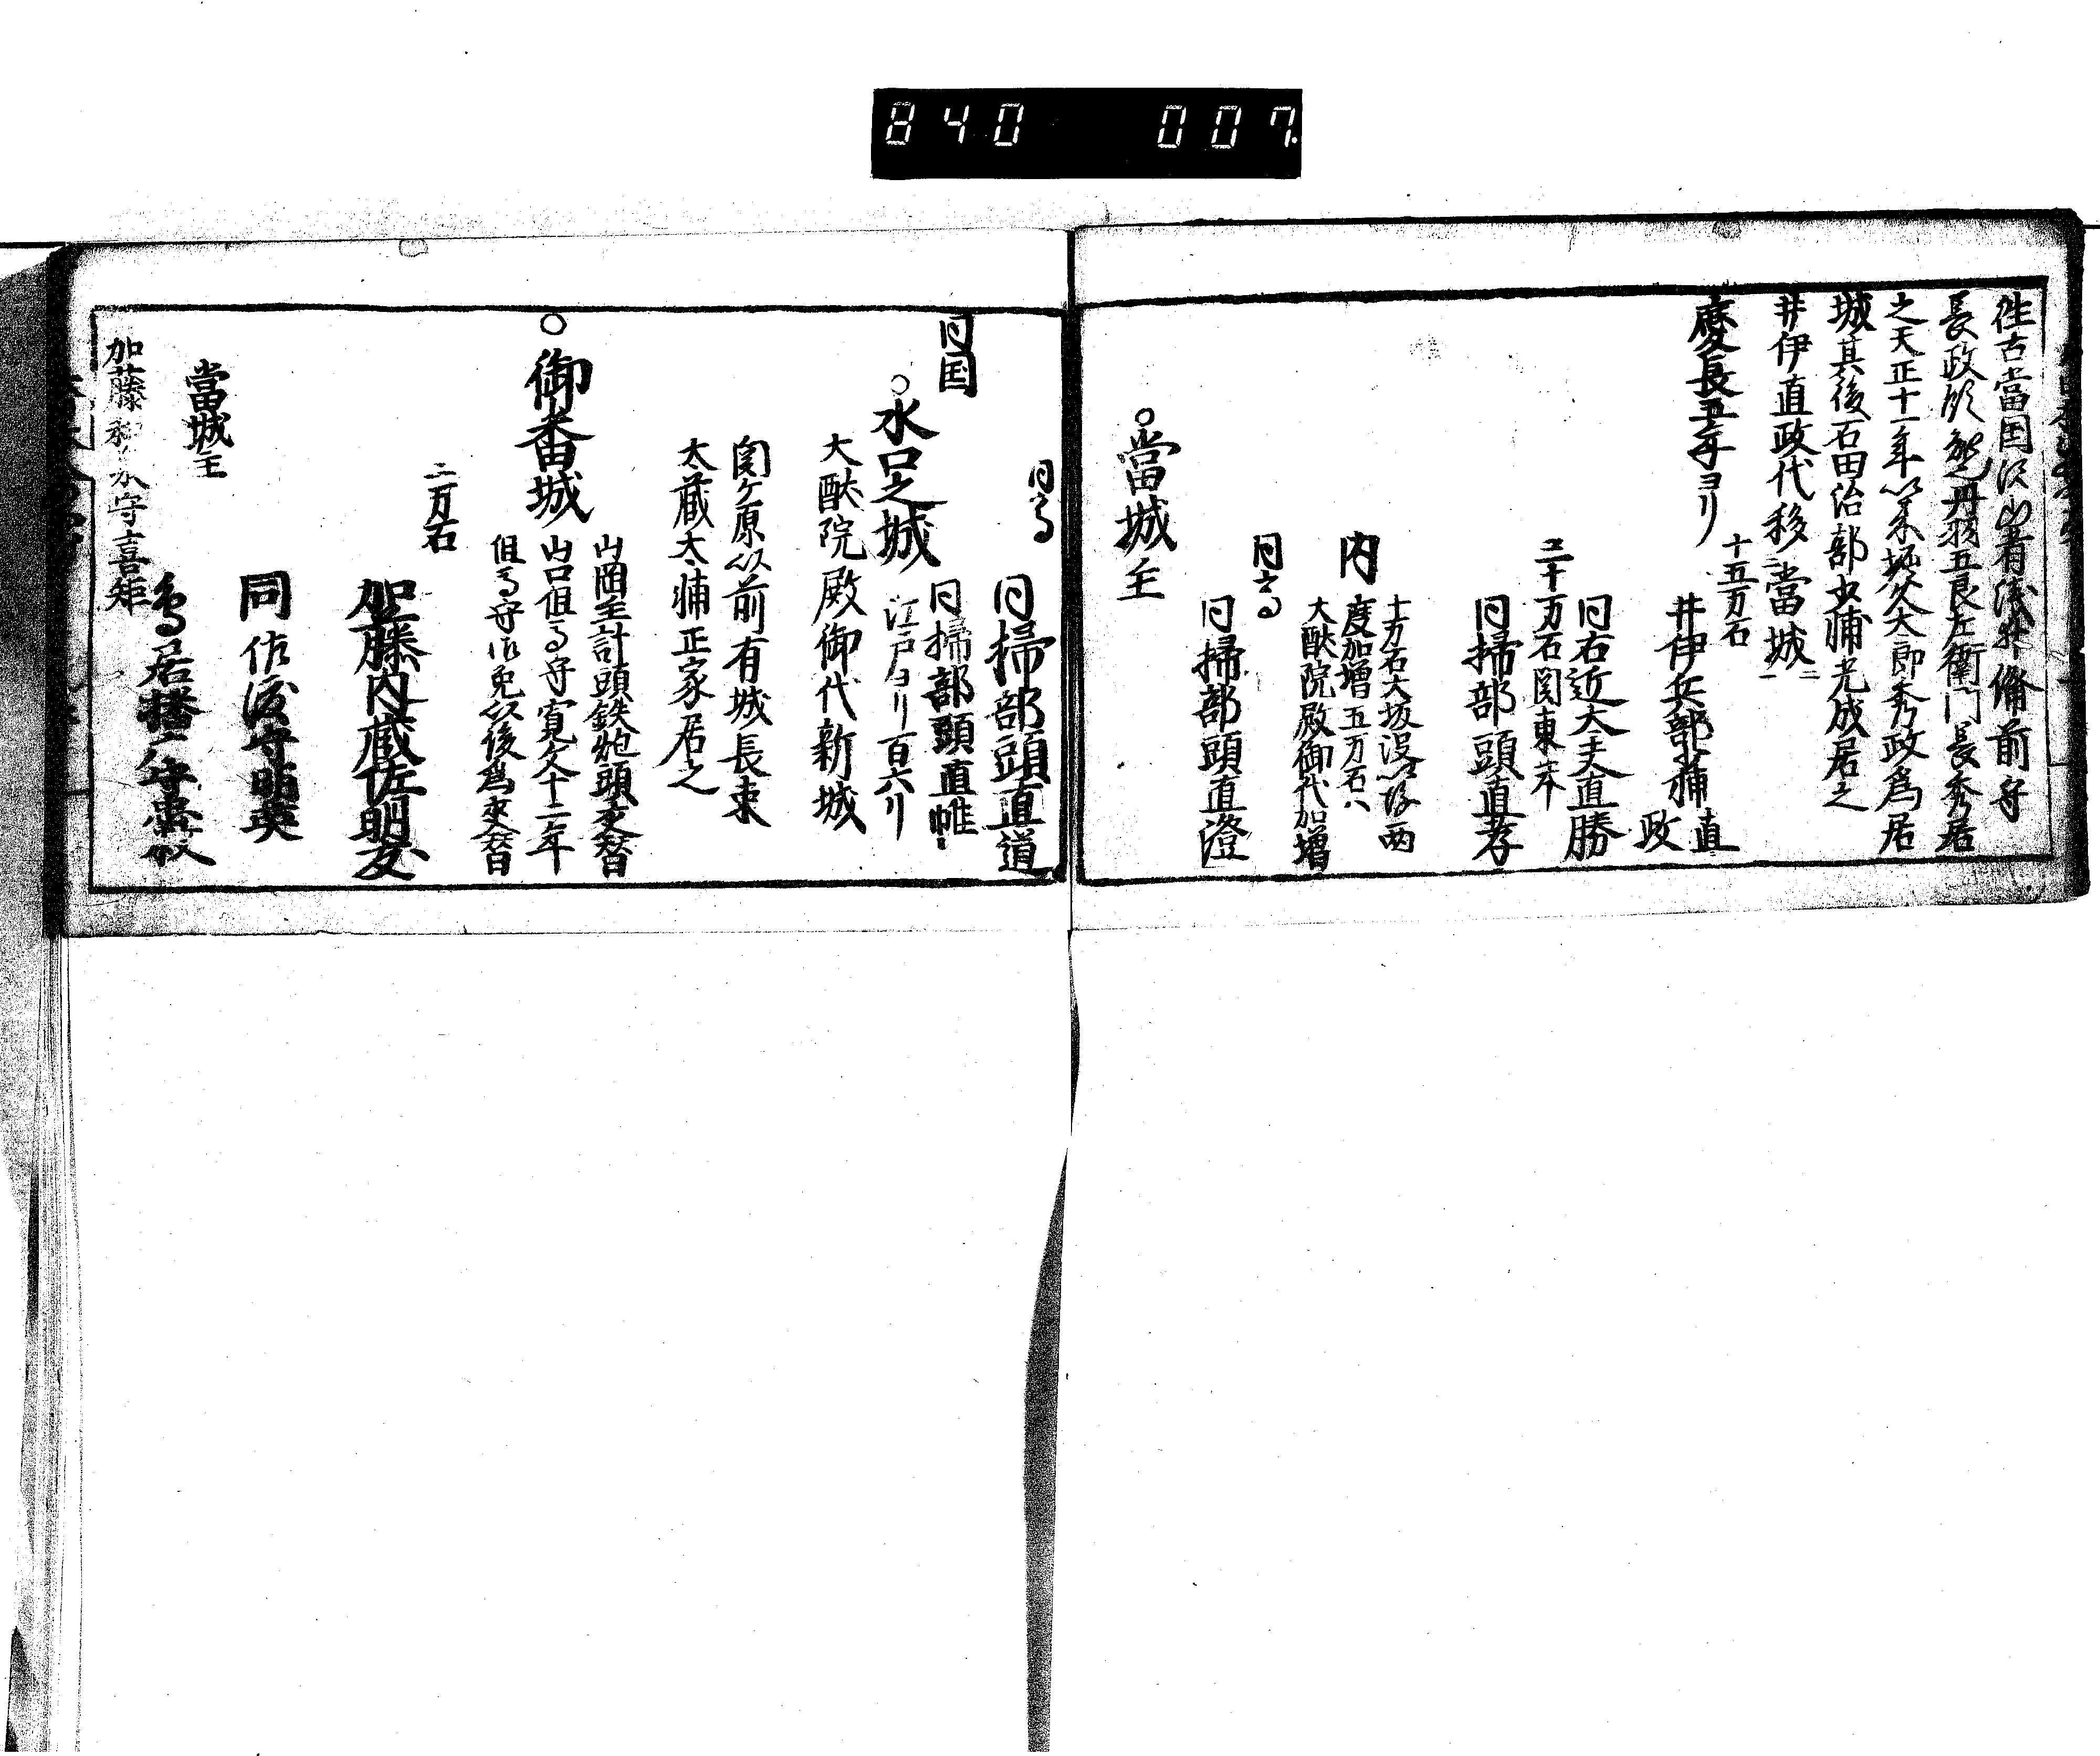 840 007
往古當国沢山者浅井備前守
長政所知之丹羽五良左衛門長秀居
之天正十一年ヨリ堀久太郎秀政為居
城其後石田治部少浦光成居之
井伊直政代移二當城一
慶長五年ヨリ
十五万石
井伊兵部少浦直政
同右近大夫直勝
三十万石関東ニ本
同掃部頭直孝
十万石大坂落以後両
内度加増五万石ハ
大猷院殿御代加増
同高
同掃部頭直澄
○當城主
同高
同掃部頭直道
同掃部頭直惟
同国
○水口之城
江戸ヨリ百六リ
大猷院殿御代新城
関ケ原以前有城長束
太蔵太浦正家居之
○御番城
山岡主計頭鉄炮頭交替
山口但馬守寛文十二年
但馬守御免以後為交替
二万石
加藤内蔵佐明友
同佐渡守明英
當城主
鳥居播广守忠救
加藤和泉守喜矩